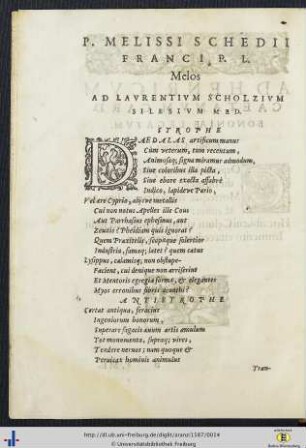 P. MELISSI SCHEDII
FRANCI, P. L.
Melos
AD LAVRENTIVM SCHOLZIVM
SILESIVM MED.
STROPHE
DAEDALAS artificum manus
Cùm veterum, tum recentum,
Animosq; signa miramur admodum,
Siue coloribus illa picta,
Siue ebore exacta affabrè
Indico, lapideve Pario,
Vel aere Cyprio, aliisve metallis
Cui non notus Apelles ille Cous
Aut Parrhasius ephesinus, aut
Zeuxis? Phidiam quis ignorat?
Quem Praxitelis, Scopaeque solertior
Industria, famaq; latet? quem catus
Lysippus, calamisq; non obstupe-
Facient, cui denique non arriserint
Et Mentoris egregia forma, & elegantes
Myos erronibus fibris acanthi?
ANTISTROPHE
Certat antiqua, feracius
Ingeniorum bonorum,
Superare seculum artis aemulum
Tot monumenta, supraq; vires,
Tendere neruos; nam quoque &
Peruicax hominis animulus
Tran-
http://dl.ub.uni-freiburg.de/diglit/aranzi1587/0014
© Universitätsbibliothek Freiburg